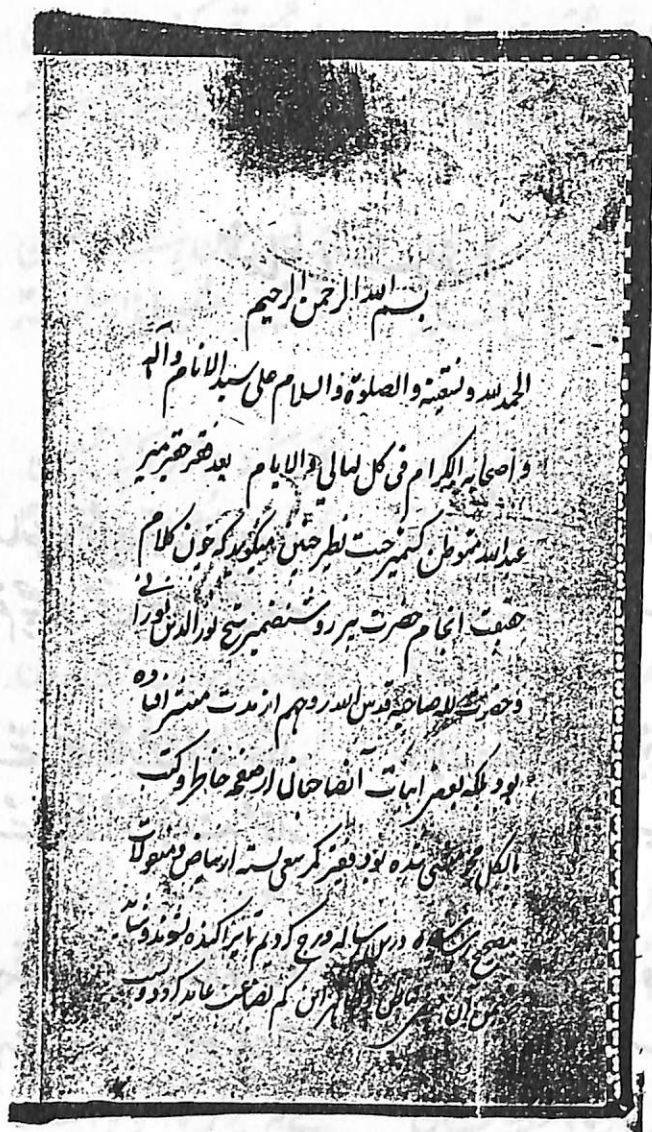 بسم الله الرحمن الرحیم
الحمد لله ونستعینه والصلوة والسلام علی سید الانام وآله
واصحابه الکرام فی کل لیالی والایام بعد فقیر حقیر میر
عبدالله متوطن کشمیر جنت نظیر چنین میگوید که چون کلام
حقیقت انجام حضرت پیر روشنضمیر شیخ نورالدین نورانی
وحضرت للا صاحبه قدس الله روحهم از مدت منتشر افتاده
بود بلکه بعضی ابیات آنصاحبانی از صفحه خاطر و کتب
بالکل محو شده بود فقیر کمر سعی بسته از بیاض ومنقولات
صحیح درین رساله درج کردیم تا پراکنده نشوند وشاید
این کم بضاعت عاید گردد